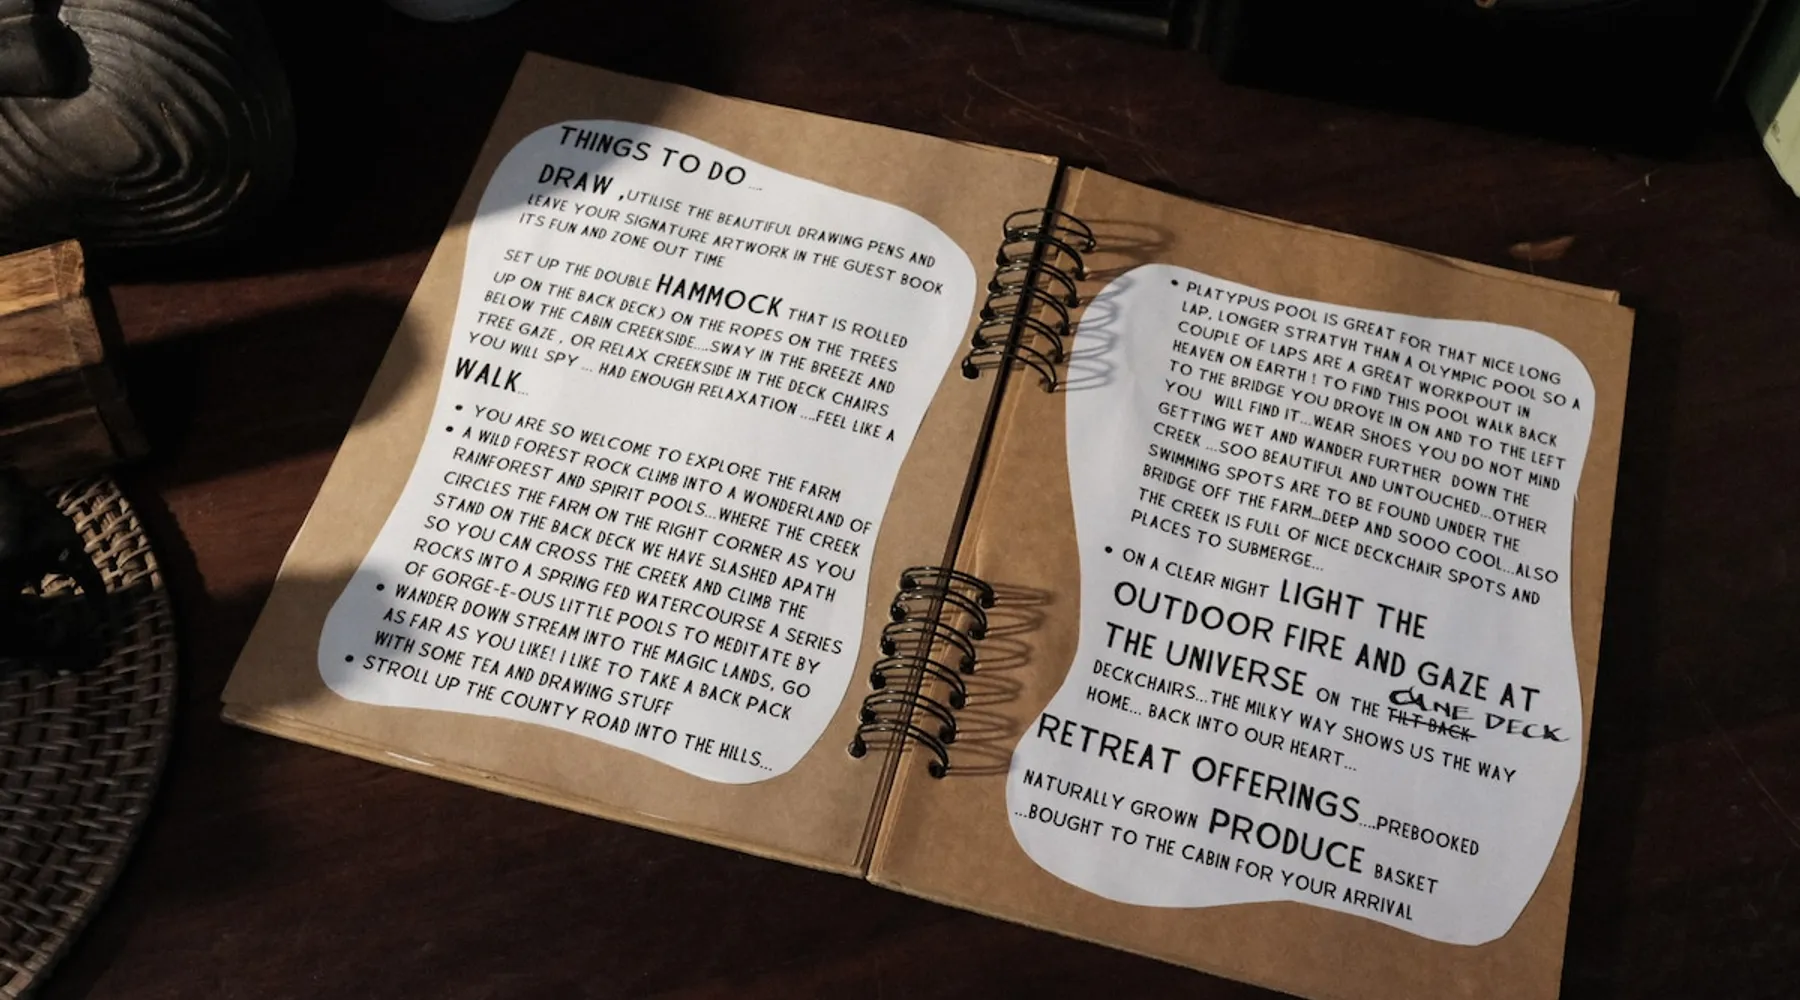 THINGS TO DO....
DRAW ,UTILISE THE BEAUTIFUL DRAWING PENS AND
LEAVE YOUR SIGNATURE ARTWORK IN THE GUEST BOOK
ITS FUN AND ZONE OUT TIME
SET UP THE DOUBLE HAMMOCK THAT IS ROLLED
UP ON THE BACK DECK) ON THE ROPES ON THE TREES
BELOW THE CABIN CREEKSIDE....SWAY IN THE BREEZE AND
TREE GAZE , OR RELAX CREEKSIDE IN THE DECK CHAIRS
YOU WILL SPY ... HAD ENOUGH RELAXATION ....FEEL LIKE A
WALK...
• YOU ARE SO WELCOME TO EXPLORE THE FARM
• A WILD FOREST ROCK CLIMB INTO A WONDERLAND OF
RAINFOREST AND SPIRIT POOLS...WHERE THE CREEK
CIRCLES THE FARM ON THE RIGHT CORNER AS YOU
STAND ON THE BACK DECK WE HAVE SLASHED APATH
SO YOU CAN CROSS THE CREEK AND CLIMB THE
ROCKS INTO A SPRING FED WATERCOURSE A SERIES
OF GORGE-E-OUS LITTLE POOLS TO MEDITATE BY
• WANDER DOWN STREAM INTO THE MAGIC LANDS, GO
AS FAR AS YOU LIKE! I LIKE TO TAKE A BACK PACK
WITH SOME TEA AND DRAWING STUFF
• STROLL UP THE COUNTY ROAD INTO THE HILLS...
• PLATYPUS POOL IS GREAT FOR THAT NICE LONG
LAP. LONGER STRATVH THAN A OLYMPIC POOL SO A
COUPLE OF LAPS ARE A GREAT WORKPOUT IN
HEAVEN ON EARTH ! TO FIND THIS POOL WALK BACK
TO THE BRIDGE YOU DROVE IN ON AND TO THE LEFT
YOU WILL FIND IT...WEAR SHOES YOU DO NOT MIND
GETTING WET AND WANDER FURTHER DOWN THE
CREEK ...SOO BEAUTIFUL AND UNTOUCHED...OTHER
SWIMMING SPOTS ARE TO BE FOUND UNDER THE
BRIDGE OFF THE FARM...DEEP AND SOOO COOL...ALSO
THE CREEK IS FULL OF NICE DECKCHAIR SPOTS AND
PLACES TO SUBMERGE...
• ON A CLEAR NIGHT LIGHT THE
OUTDOOR FIRE AND GAZE AT
THE UNIVERSE ON THE TILT BACK CANE DECK
DECKCHAIRS...THE MILKY WAY SHOWS US THE WAY
HOME... BACK INTO OUR HEART...
RETREAT OFFERINGS....PREBOOKED
NATURALLY GROWN PRODUCE BASKET
...BOUGHT TO THE CABIN FOR YOUR ARRIVAL